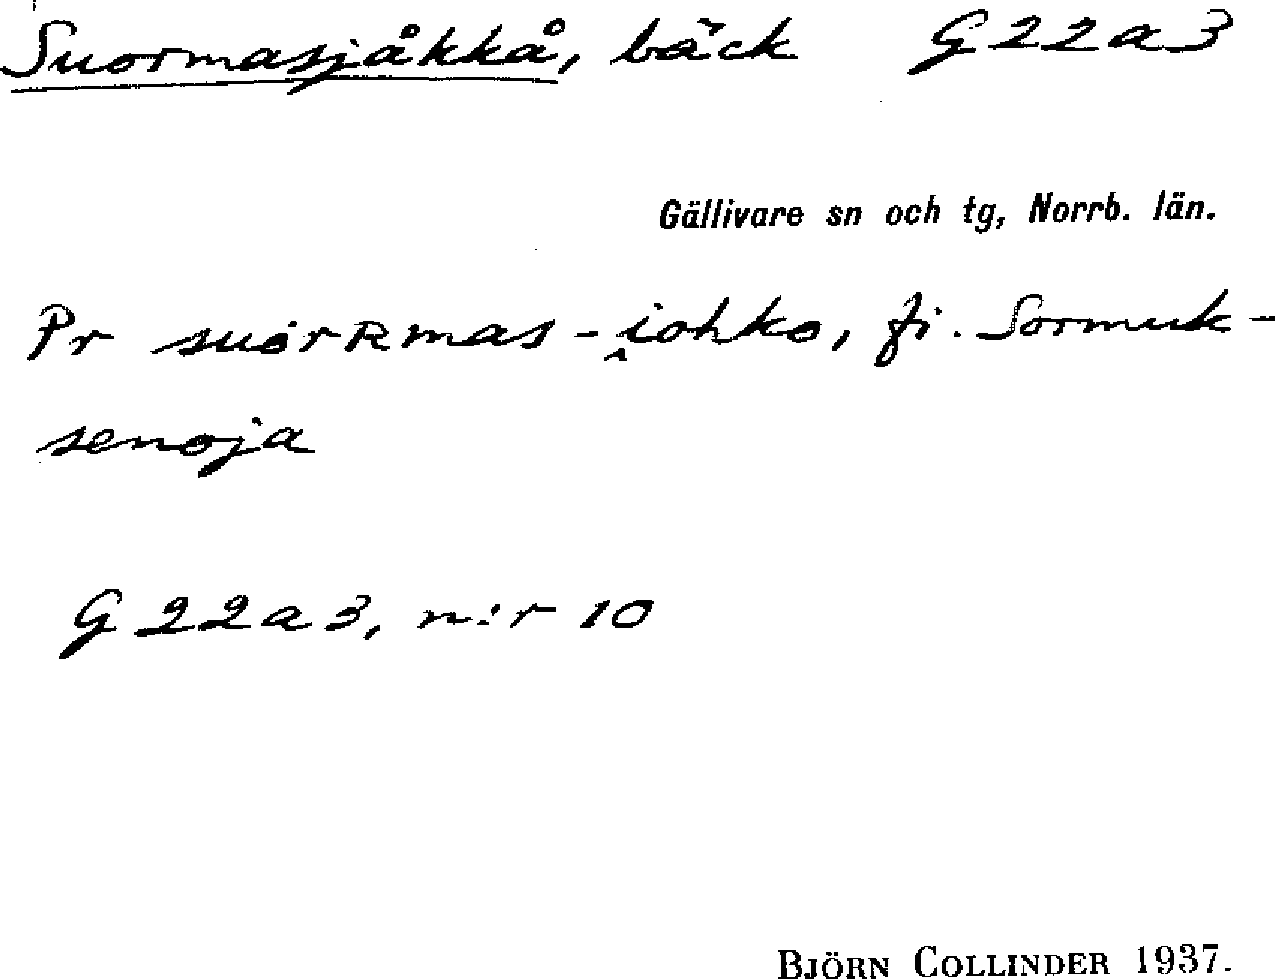 Suormasjåkkå, bäck G22a3
Gällivare sn och tg, Norrb. län.
Pr suȯrʀmas-i̭ohko, fi. Sormuk-
senoja
G22a3, n:r 10
BJÖRN COLLINDER 1937.